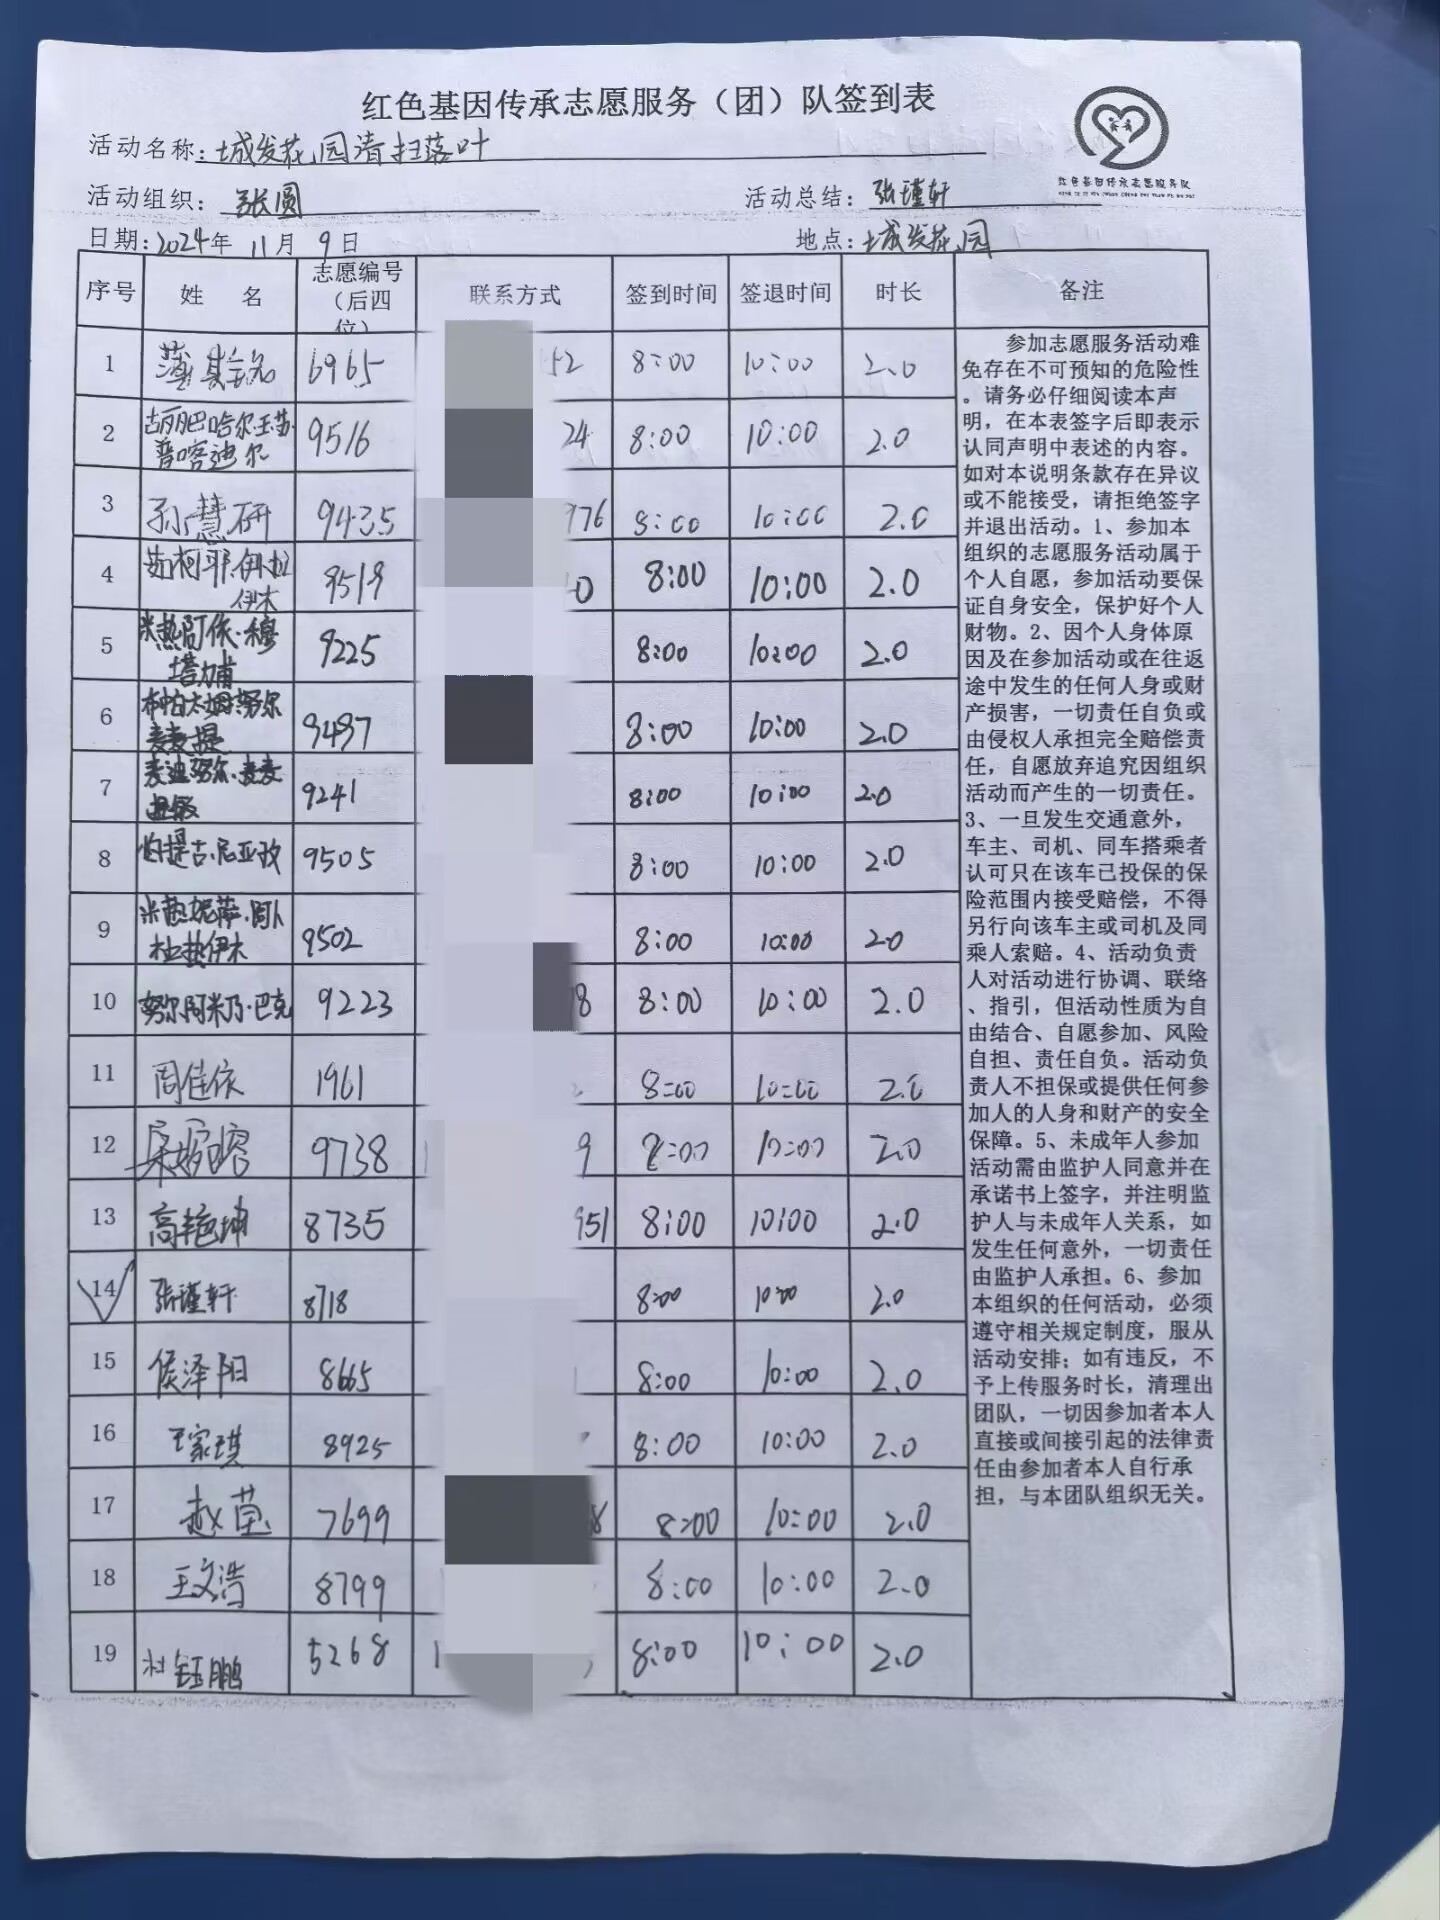 红色基因传承志愿服务（团）队签到表
红色基因传承志愿服务队
活动名称：城发花园清扫落叶
活动组织：张圆 活动总结：张瑾轩
日期：2024年 11月 9日 地点：城发花园
序号 姓 名 志愿编号（后四位） 联系方式 签到时间 签退时间 时长 备注
1 6965 52 8:00 10:00 2.0
2 古丽巴哈尔·玉苏普喀迪尔 9516 24 8:00 10:00 2.0
3 孙慧研 9435 976 8:00 10:00 2.0
4 茹柯耶·伊拉伊木 9519 0 8:00 10:00 2.0
5 米热阿依·穆塔力甫 9225 8:00 10:00 2.0
6 布帕太姆·努尔麦麦提 9497 8:00 10:00 2.0
7 麦迪努尔·麦麦 9241 8:00 10:00 2.0
8 古·尼亚孜 9505 8:00 10:00 2.0
9 米热妮萨·阿卜杜热伊木 9502 8:00 10:00 2.0
10 努尔阿米乃·巴克 9223 8 8:00 10:00 2.0
11 周佳依 1961 8:00 10:00 2.0
12 9738 9 8:00 10:00 2.0
13 高艳坤 8735 951 8:00 10:00 2.0
14 张瑾轩 8718 8:00 10:00 2.0
15 侯泽阳 8665 8:00 10:00 2.0
16 王家琪 8925 8:00 10:00 2.0
17 赵莹 7699 8 8:00 10:00 2.0
18 王文浩 8799 8:00 10:00 2.0
19 杜钰鹏 5268 1 8:00 10:00 2.0
参加志愿服务活动难
免存在不可预知的危险性
。请务必仔细阅读本声
明，在本表签字后即表示
认同声明中表述的内容。
如对本说明条款存在异议
或不能接受，请拒绝签字
并退出活动。1、参加本
组织的志愿服务活动属于
个人自愿，参加活动要保
证自身安全，保护好个人
财物。2、因个人身体原
因及在参加活动或在往返
途中发生的任何人身或财
产损害，一切责任自负或
由侵权人承担完全赔偿责
任，自愿放弃追究因组织
活动而产生的一切责任。
3、一旦发生交通意外，
车主、司机、同车搭乘者
认可只在该车已投保的保
险范围内接受赔偿，不得
另行向该车主或司机及同
乘人索赔。4、活动负责
人对活动进行协调、联络
、指引，但活动性质为自
由结合、自愿参加、风险
自担、责任自负。活动负
责人不担保或提供任何参
加人的人身和财产的安全
保障。5、未成年人参加
活动需由监护人同意并在
承诺书上签字，并注明监
护人与未成年人关系，如
发生任何意外，一切责任
由监护人承担。6、参加
本组织的任何活动，必须
遵守相关规定制度，服从
活动安排；如有违反，不
予上传服务时长，清理出
团队，一切因参加者本人
直接或间接引起的法律责
任由参加者本人自行承
担，与本团队组织无关。